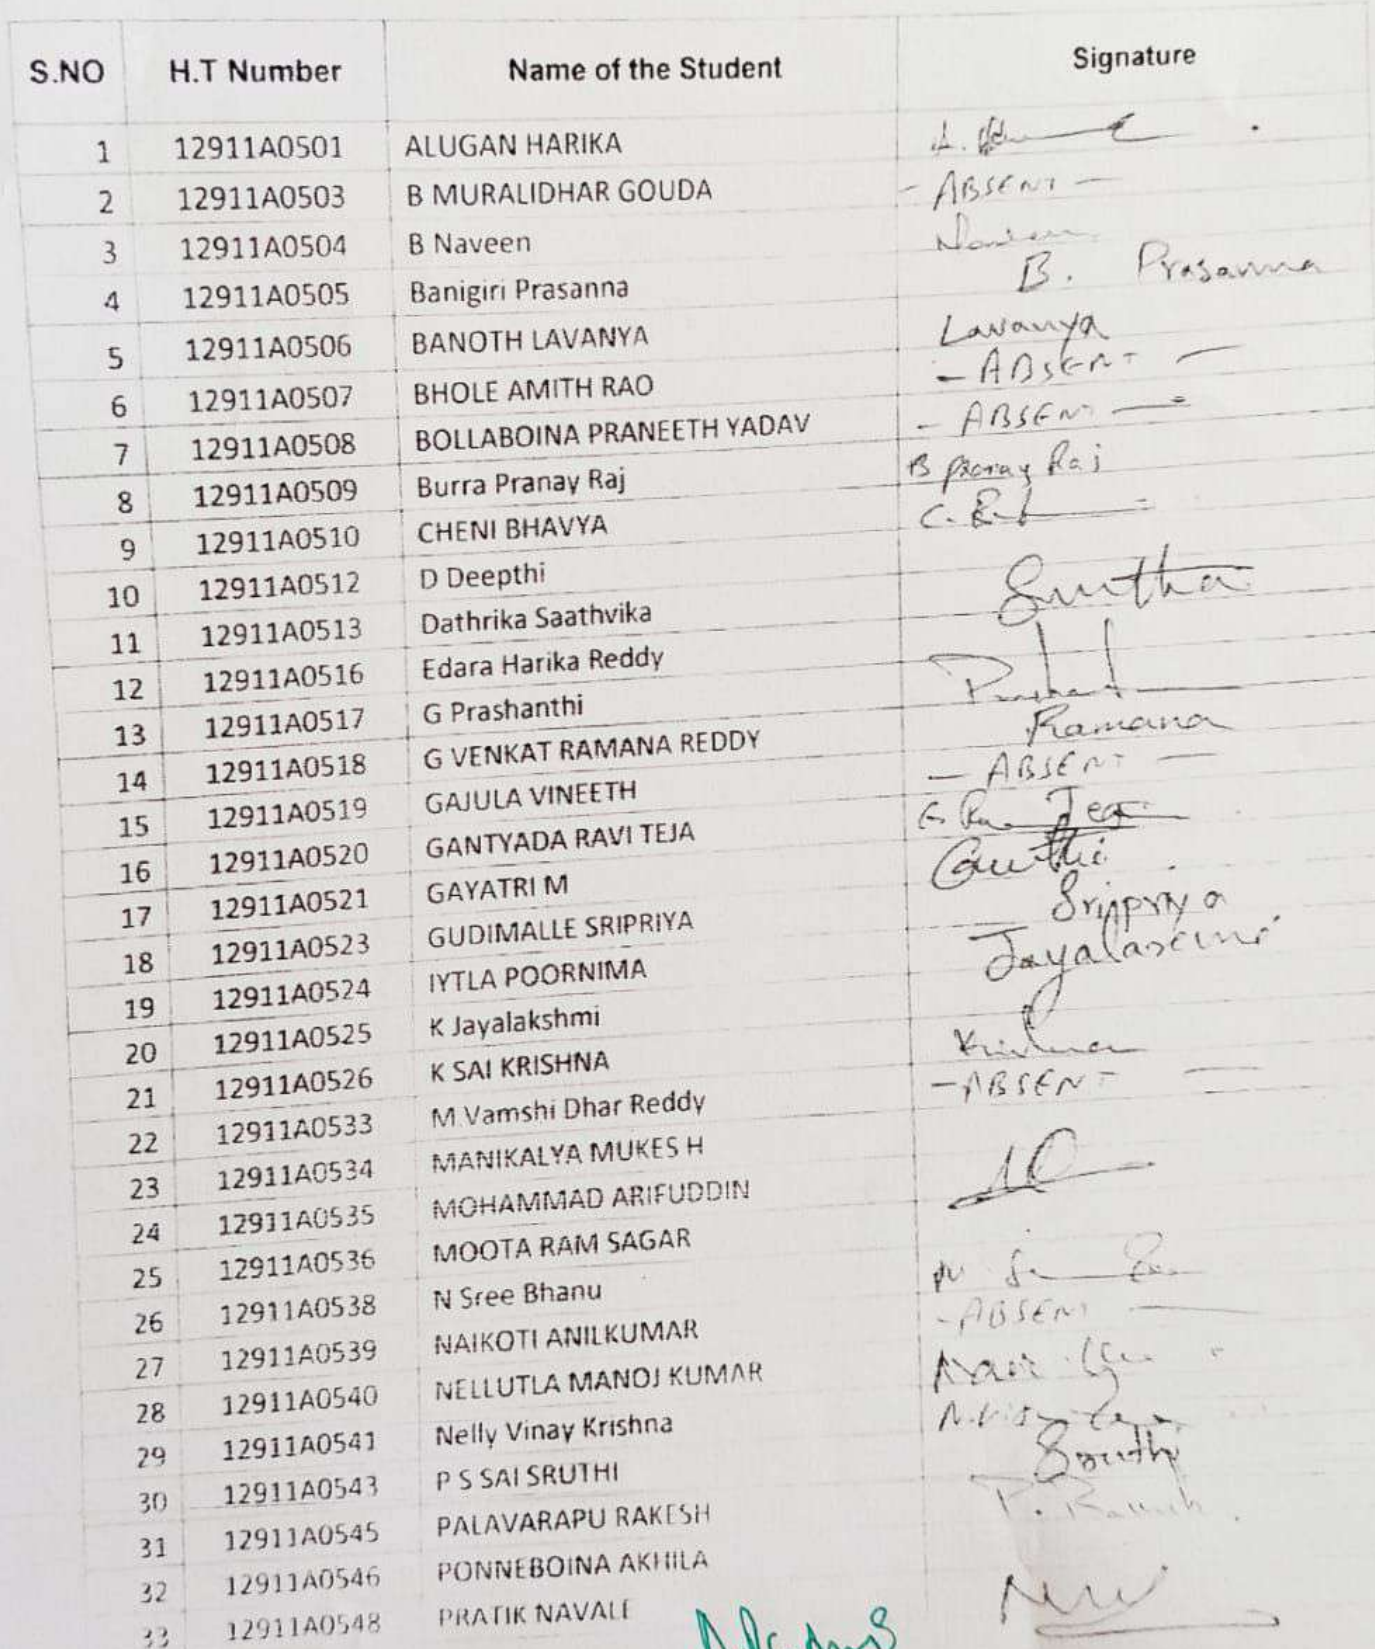 S.NO H.T Number Name of the Student Signature
1 12911A0501 ALUGAN HARIKA
2 12911A0503 B MURALIDHAR GOUDA - ABSENT -
3 12911A0504 B Naveen Naveen
4 12911A0505 Banigiri Prasanna B. Prasanna
5 12911A0506 BANOTH LAVANYA Lavanya
6 12911A0507 BHOLE AMITH RAO - ABSENT -
7 12911A0508 BOLLABOINA PRANEETH YADAV - ABSENT -
8 12911A0509 Burra Pranay Raj B Pranay Raj
9 12911A0510 CHENI BHAVYA
10 12911A0512 D Deepthi
11 12911A0513 Dathrika Saathvika
12 12911A0516 Edara Harika Reddy
13 12911A0517 G Prashanthi
14 12911A0518 G VENKAT RAMANA REDDY Ramana
15 12911A0519 GAJULA VINEETH - ABSENT -
16 12911A0520 GANTYADA RAVI TEJA
17 12911A0521 GAYATRI M
18 12911A0523 GUDIMALLE SRIPRIYA Sripriya
19 12911A0524 IYTLA POORNIMA
20 12911A0525 K Jayalakshmi
21 12911A0526 K SAI KRISHNA Krishna
22 12911A0533 M Vamshi Dhar Reddy - ABSENT -
23 12911A0534 MANIKALYA MUKES H
24 12911A0535 MOHAMMAD ARIFUDDIN
25 12911A0536 MOOTA RAM SAGAR
26 12911A0538 N Sree Bhanu
27 12911A0539 NAIKOTI ANILKUMAR - ABSENT -
28 12911A0540 NELLUTLA MANOJ KUMAR
29 12911A0541 Nelly Vinay Krishna
30 12911A0543 P S SAI SRUTHI Sruthi
31 12911A0545 PALAVARAPU RAKESH P. Rakesh
32 12911A0546 PONNEBOINA AKHILA
33 12911A0548 PRATIK NAVALE